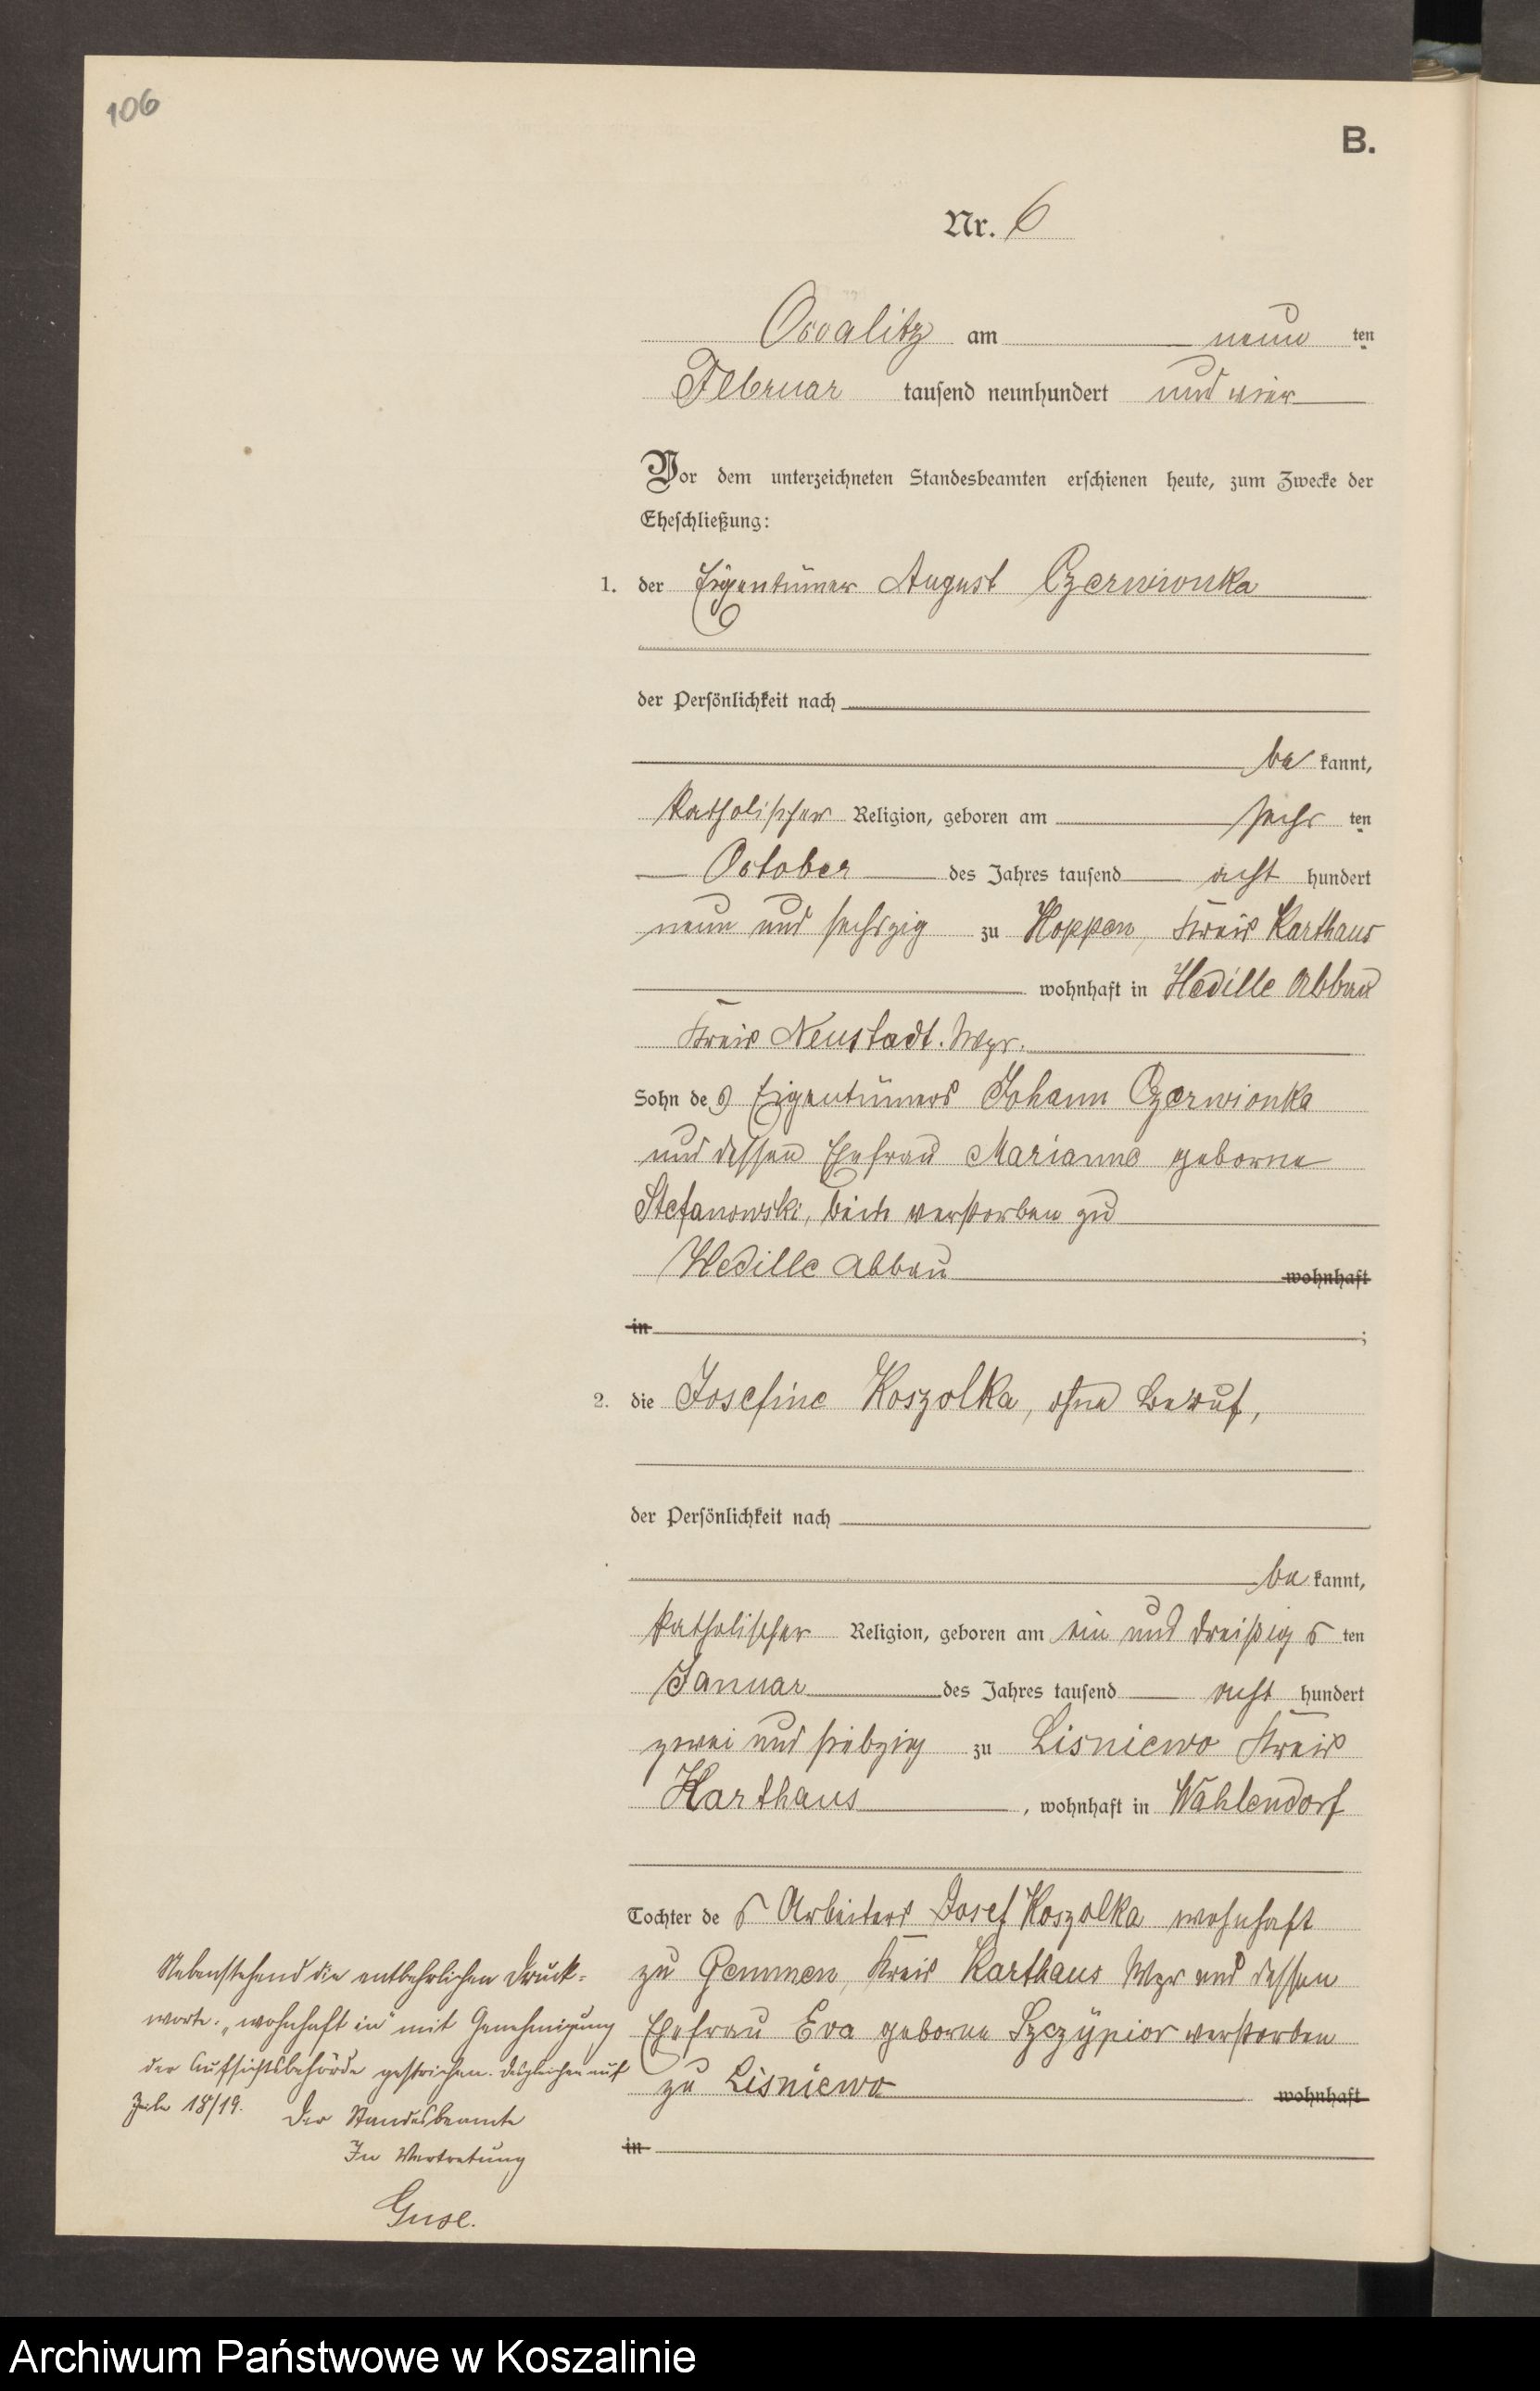 106
B.
Nr. 6
Occalitz am neun ten
Februar tausend neunhundert und vier
Vor dem unterzeichneten Standesbeamten erschienen heute, zum Zwecke der
Eheschließung:
1. der Eigentümer August Czerwionka
der Persönlichkeit nach
be kannt,
katholischer Religion, geboren am sechs ten
October des Jahres tausend acht hundert
neun und sechszig zu Hoppen, Kreis Karthaus
wohnhaft in Hedille Abbau
Kreis Neustadt. Wpr.
Sohn des Eigentümers Johann Czerwionka
und dessen Ehefrau Marianne geborne
Stefanowski, beide verstorben zu
Hedille Abbau wohnhaft
in ;
2. die Josefine Koszolka, ohne Beruf,
der Persönlichkeit nach
be kannt,
katholischer Religion, geboren am ein und dreißig s ten
Januar des Jahres tausend acht hundert
zwei und siebzig zu Lisniewo Kreis
Karthaus, wohnhaft in Wahlendorf
Tochter des Arbeiters Josef Koszolka wohnhaft
zu Gemmen, Kreis Karthaus Wpr und dessen
Ehefrau Eva geborne Szczÿpior verstorben
zu Lisniewo wohnhaft
in
Nebenstehend die entbehrlichen Druck-
worte: „wohnhaft in" mit Genehmigung
der Aufsichtsbehörde gestrichen. Desgleichen auf
Zeile 18/19.
Der Standesbeamte
In Vertretung
Guse.
Archiwum Państwowe w Koszalinie